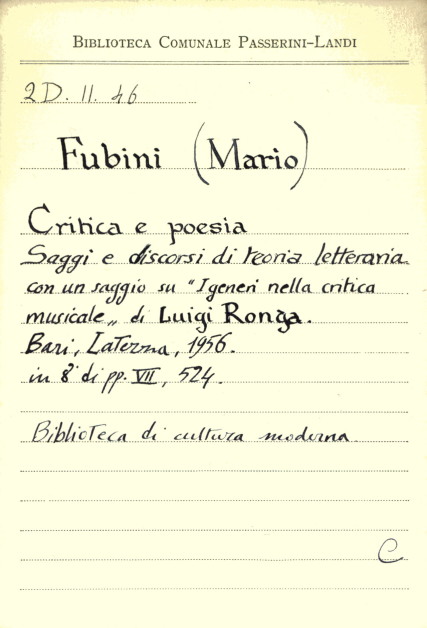 BIBLIOTECA COMUNALE PASSERINI-LANDI
2D. II. 46
Fubini (Mario)
Critica e poesia
Saggi e discorsi di teoria letteraria
con un saggio su "I generi nella critica
musicale„ di Luigi Ronga.
Bari, Laterza, 1956.
in 8° di pp. VII, 524.
Biblioteca di cultura moderna
C